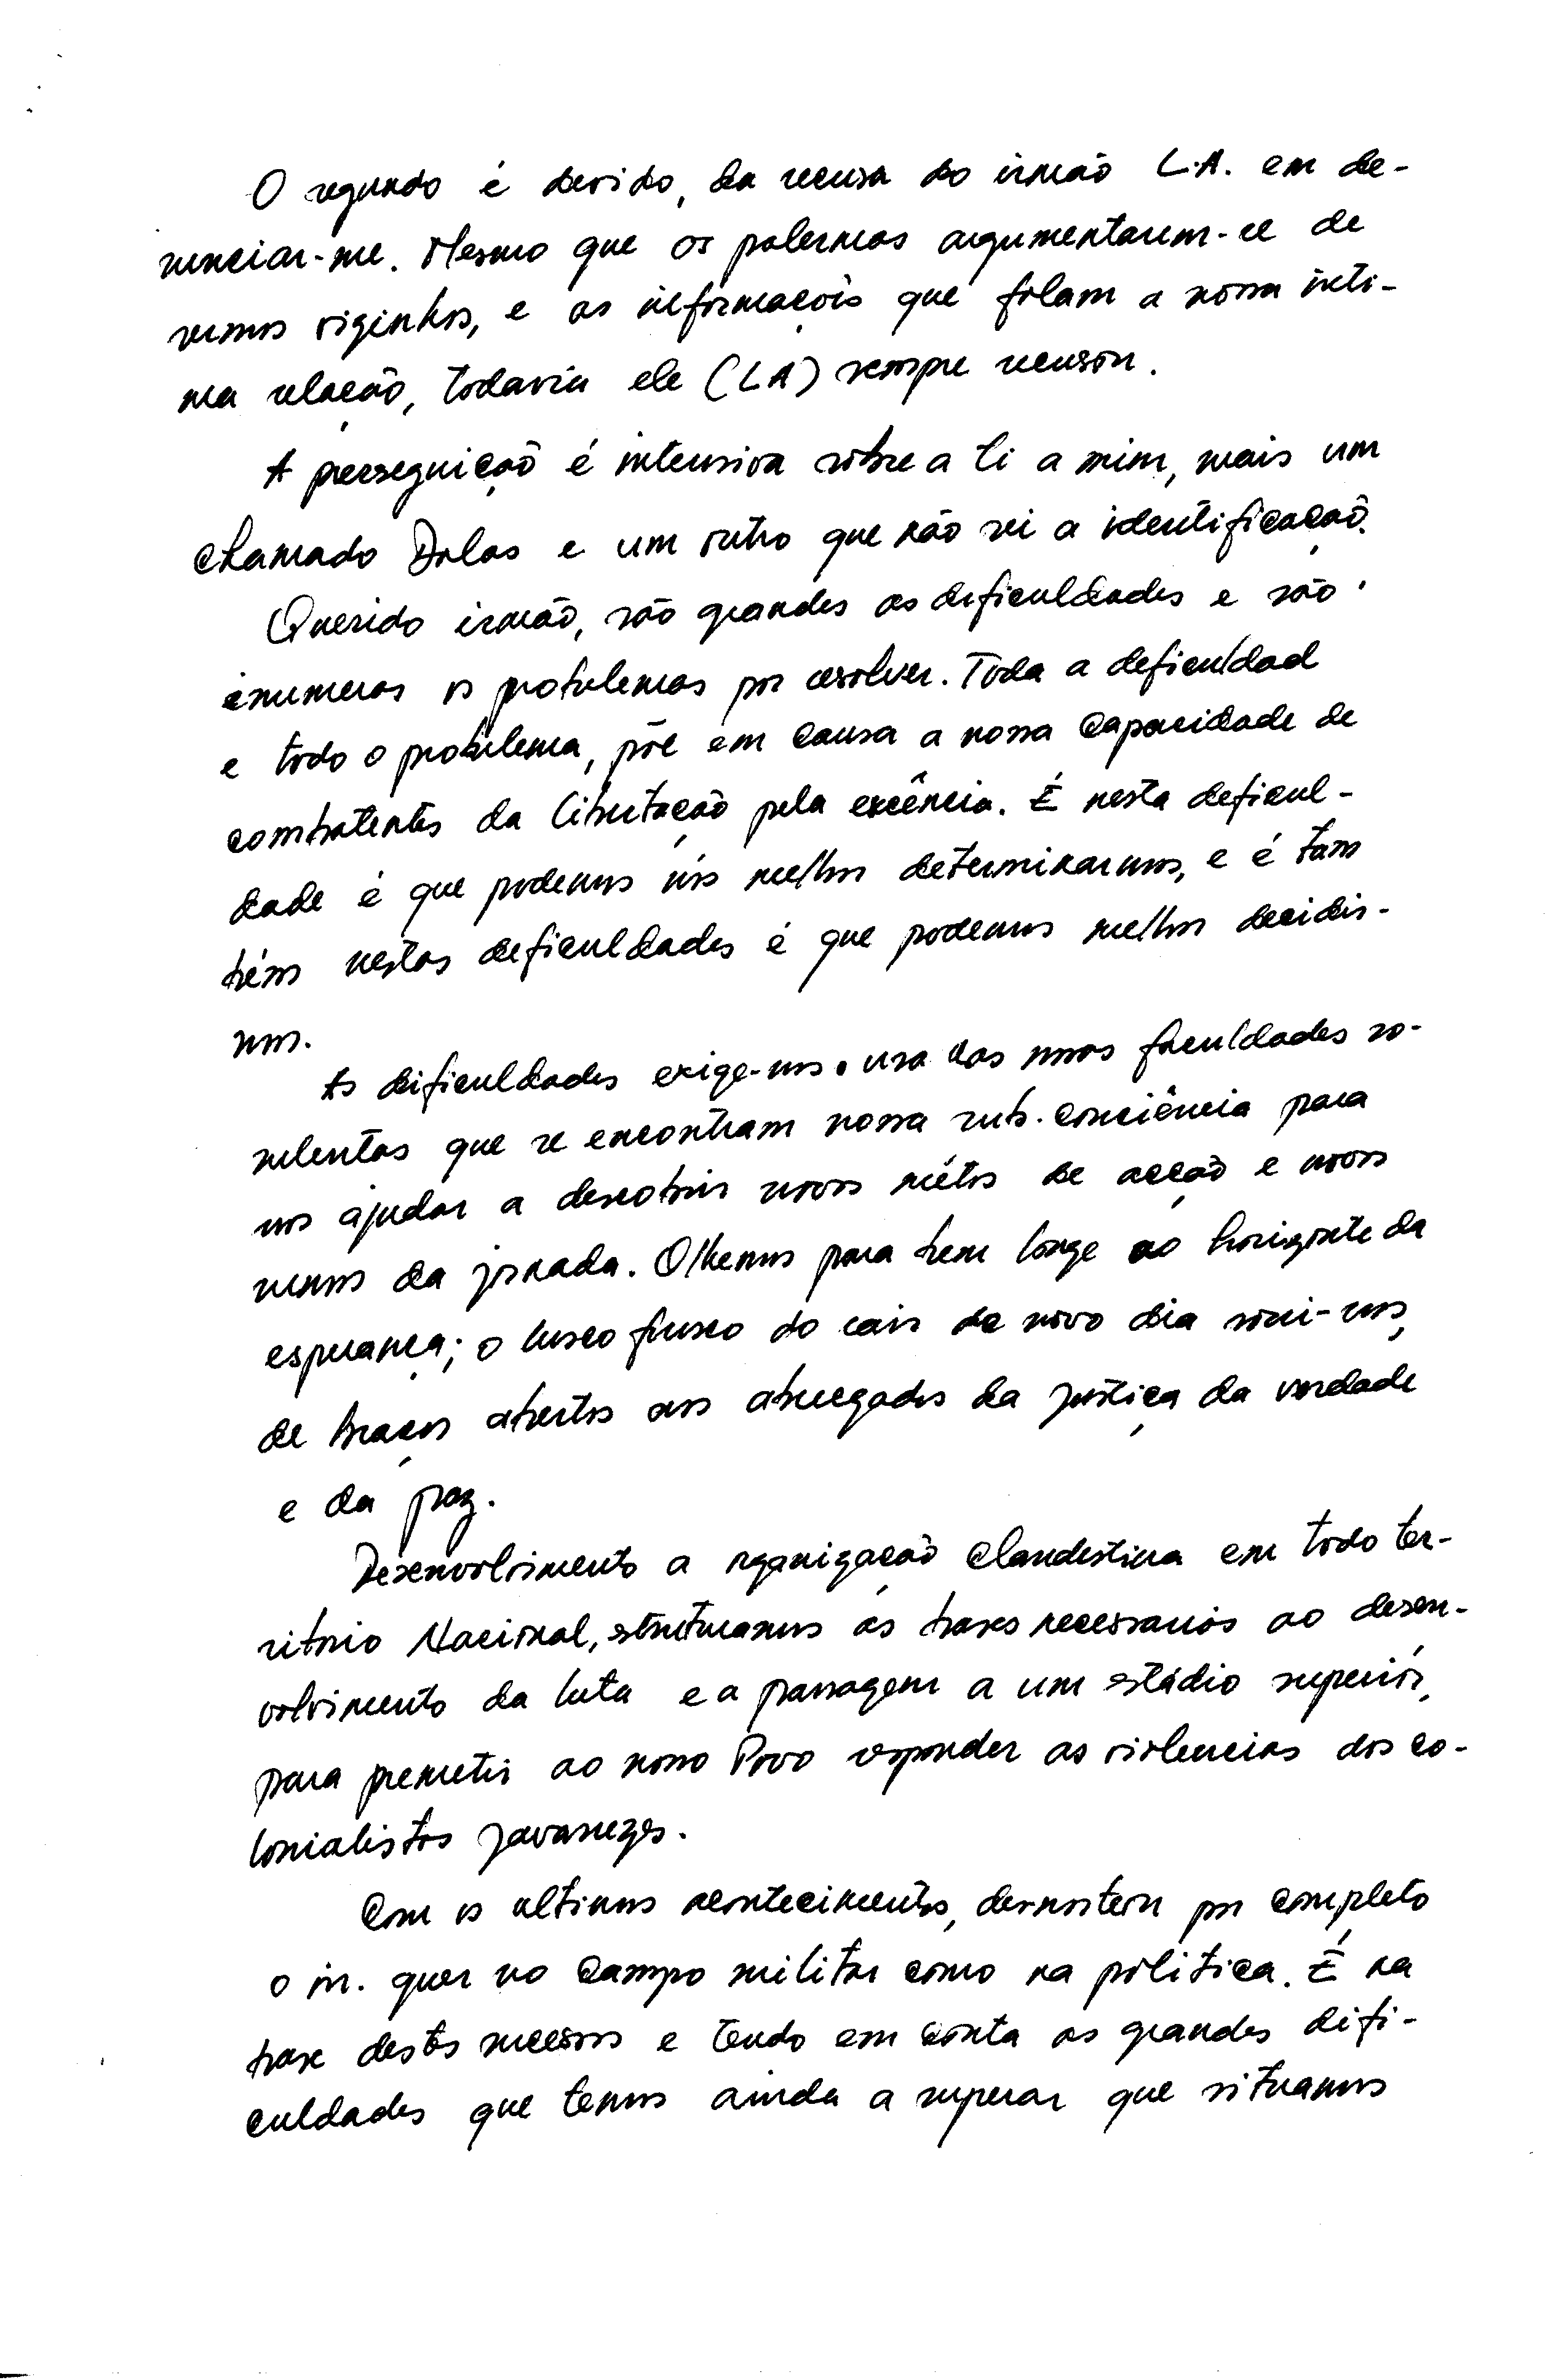 O segundo é devido, da recusa do irmão L.A. em de-
nunciar-me. Mesmo que os palermas argumentarem-se de
sermos viginhos, e as informações que falam a nossa inti-
ma relação, todavia ele (LA) sempre recusou.
A perseguição é intensiva sôbre a ti a mim, mais um
chamado Dalas e um outro que não sei a identificação.
Querido irmão, são grandes as dificuldades e são
enumeras os problemas por resolver. Toda a deficuldad
e todo o problema, põe em causa a nossa capacidade de
combatentes da libertação pela excência. É nesta deficul-
dade é que podemos nós melhor determinarmos, e é tam
bém nestas deficuldades é que podemos melhor decidir-
nos.
As dificuldades exige-nos o uso das novas faculdades so-
nulentas que se encontram nossa sub-consciência para
nos ajudar a descobrir novos métos de acção e novos
rumos da jornada. Olhemos para bem longe ao horizonte da
esperança; o lusco fusco do cair de novo dia sorri-nos,
de braços abertos aos abnegados da justiça da verdade
e da paz.
Desenvolvimento a organização clandestina em todo ter-
ritório Nacional, estruturamos as bases necessarias ao desen-
volvimento da luta e a passagem a um estádio superiór,
para premetir ao nosso Povo responder as violencias dos co-
lonialistas javanezes.
Com os ultimos acontecimentos, desnorteou por completo
o in. quer no campo militar como na politica. É na
base destes sucessos e tendo em conta as grandes difi-
culdades que temos ainda a superar que situamos